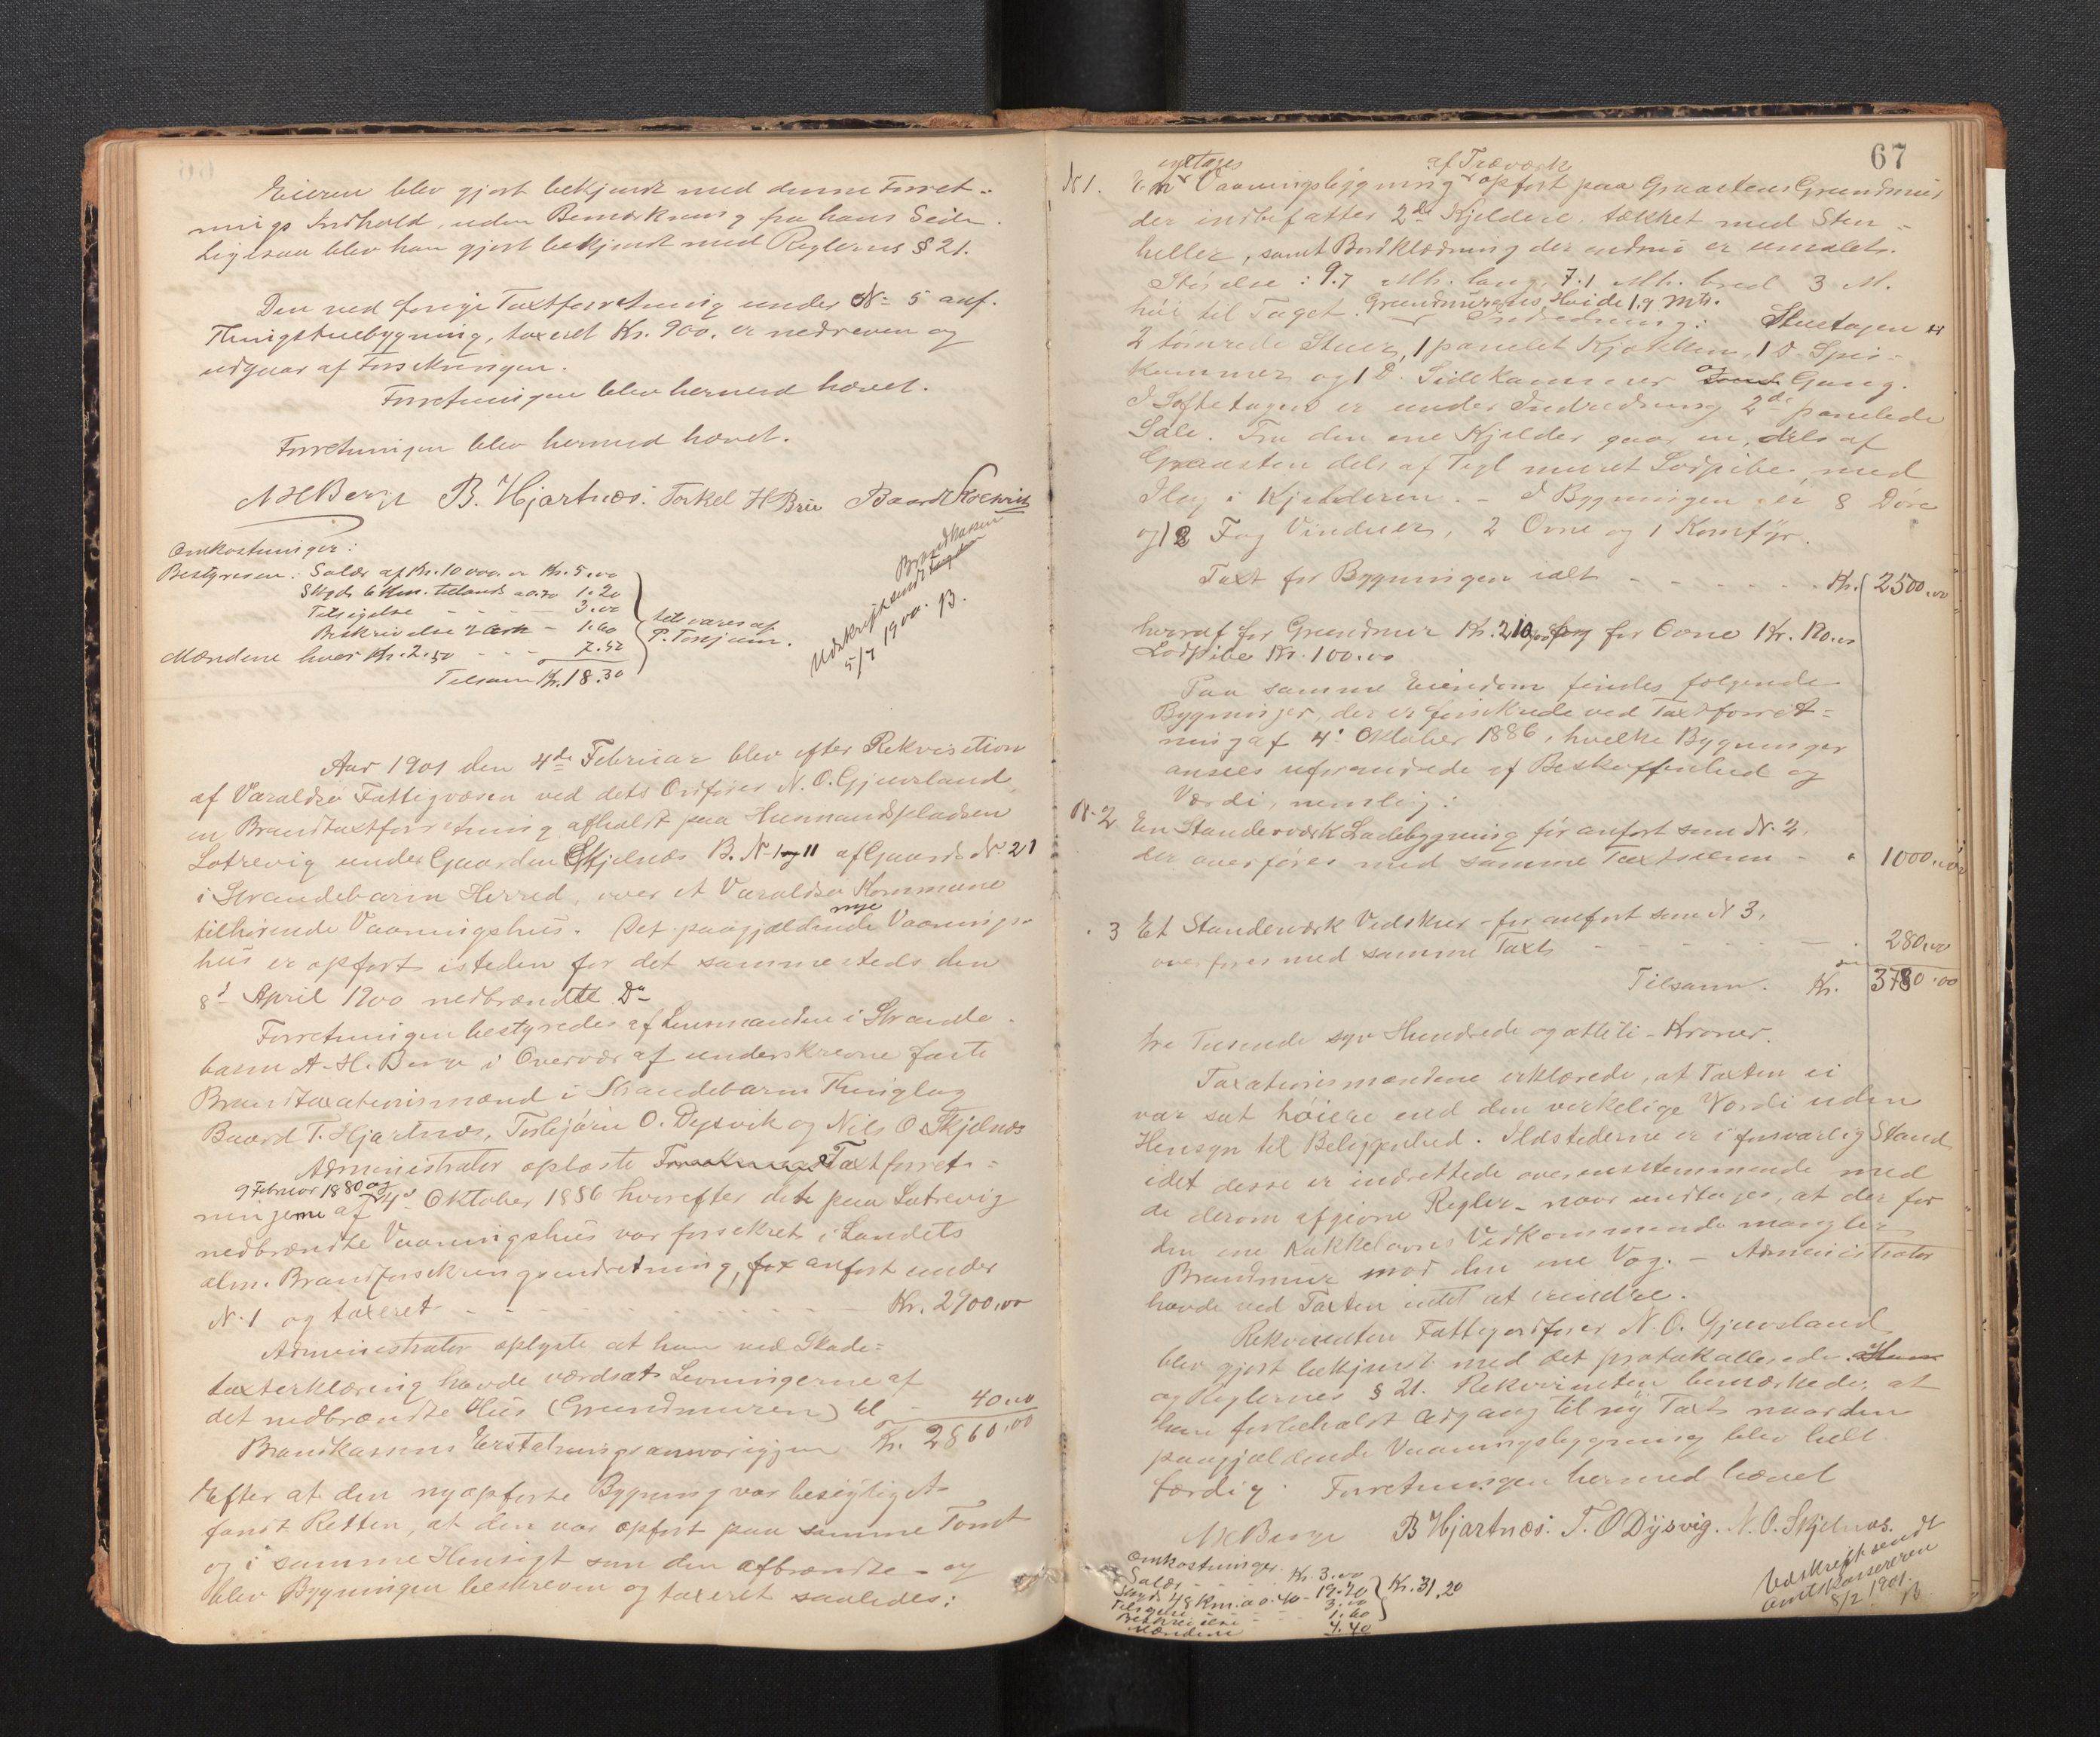 Eieren blev gjort bekjendt med denne Forret-
nings Indhold, uden Bemærkning fra hans Side.
Ligesaa blev han gjort bekjendt med Reglernes § 21.
Den ved forrige Taxtforretning under No 5 anf.
Thingstuebygning, taxeret Kr. 900. er nedreven og
udgaar af Forsikringen.
Forretningen blev hermed hævet.
Forretningen blev hermed hævet.
AHBerge B. Hjartnæs. Torkel H Brei Baard
Omkostninger:
Bestyreren: Salær af Kr. 10 000.00 Kr. 5.00
Skyds 6 Klm. tillands a 0.20 1.20
Tilsigelse - - - 3.00
Beskrivelse 2 Ark - 1.60
Mændene hver Kr. 2.50 - - - 7.50
Tilsam Kr. 18.30
tilsvares af
P. Tonjum.
Udskrift sendt
Brandkassen
5/7 1900. B.
Aar 1901 den 4de Februar blev efter Rekvisition
af Varaldsø Fattigvæsen ved dets Ordfører N. O. Gjuvsland,
en Brandtaxtforretning afholdt paa Husmandspladsen
Lotrevig under Gaarden Skjelnæs B. No 1 og 11 af Gaards No 21
i Strandebarm Herred, over et Varaldsø Kommune
tilhørende Vaaningshus. Det paagjældende nye Vaanings-
hus er opført isteden for det sammesteds den
8d April 1900 nedbrændte Do
Forretningen bestyredes af Lensmanden i Strande-
barm A. H. Berge i Overvær af underskrevne faste
Brandtaxationsmænd i Strandebarm Thinglag
Baard T. Hjartnæs, Torbjørn O. Dysvik og Nils O. Skjelnæs
Administrator oplæste Taxtforret-
9 Februar 1880 og
ningerne af 4d Oktober 1886 hvorefter det paa Lotrevig
nedbrændte Vaaningshus var forsikret i Landets
alm. Brandforsikringsindretning, anført under
N. 1 og taxeret - - - Kr. 2900.00
Administrator oplyste at han ved Skade-
taxterklæring havde værdsat Levningerne af
det nedbrændte Hus (Grundmuren) til - 40.00
Brandkassens Erstatningsansvar igjen Kr. 2860.00
Efter at den nyopførte Bygning var besigtiget
fandt Retten, at den var opført paa samme Tomt
og i samme Hensigt som den afbrændte - og
blev Bygningen beskreven og taxeret saaledes:
67
N 1. En enetages Vaaningsbygning af Træværk opført paa Graastens Grundmur
der indbefatter 2de Kjeldere, tækket med Sten-
heller, samt Bordklædning der endnu er umalet.
Størelse: 9.7 Mtr. lang, 7.1 Mtr. bred 3 M.
høi til Taget. Grundmurens Høide 1.9 Mtr.
Indredning: Stuetagen er
2 tømrede Stuer, 1 panelet Kjøkken, 1 Do Spis-
kammer og 1 Do Sidekammer og Gang.
I Loftetagen er under Indredning 2de panelede
Sale. Fra den ene Kjelder gaar en, dels af
Graasten dels af Tegl muret Lodpibe med
Ilag i Kjelderen. - I Bygningen er 8 Døre
og 12 Fag Vinduer, 2 Ovne og 1 Komfyr.
Taxt for Bygningen ialt - - - Kr. 2500.00
heraf for Grundmur Kr. 210.00 for Ovne Kr. 120.00
Lodpibe Kr. 100.00
Paa samme Eiendom findes følgende
Bygninger, der er forsikrede ved Taxtforret-
ning af 4. Oktober 1886, hvilke Bygninger
ansees uforandrede af Beskaffenhed og
Værdi, nemlig:
N. 2 En Standerværk Ladebygning før anført som N. 2.
der overføres med samme Taxtsum - " 1000.00
" 3 Et Standerværk Vedskur - før anført som N 3,
overføres med samme Taxt - - - " 280.00
Tilsam. Kr. 3780.00
tre Tusende syv Hundrede og ottiti - Kroner.
Taxationsmændene erklærede, at Taxten ei
var sat høiere end den virkelige Værdi uden
Hensyn til Beliggenhed. Ildstederne er i forsvarlig Stand
idet desse er indrettede overensstemmende med
de derom afgivne Regler - naar undtages, at der for
den ene Kakkelovns Vedkommende mangler
Brandmur mod den ene Væg. - Administrator
havde ved Taxten intet at erindre.
Rekvirenten Fattigordfører N. O. Gjuvsland
blev gjort bekjendt med det protokollerede
og Reglernes § 21. Rekvirenten bemærkede, at
han forbeholdt Adgang til ny Taxt naar den
paagjældende Vaaningsbygning blev helt
færdig. Forretningen hermed hævet
AHBerge B Hjartnæs. T. O Dysvig. N. O. Skjelnæs.
Omkostninger.
Salær - - - Kr. 3.00
Skyds 48 Km. a 0.40 - 19.20
Tilsigelse - - 3.00
Beskrivelse - - 1.60
Mændene 4.40
Kr. 31.20
Udskrift sendt
Amtskassereren
8/2 1901.
B.